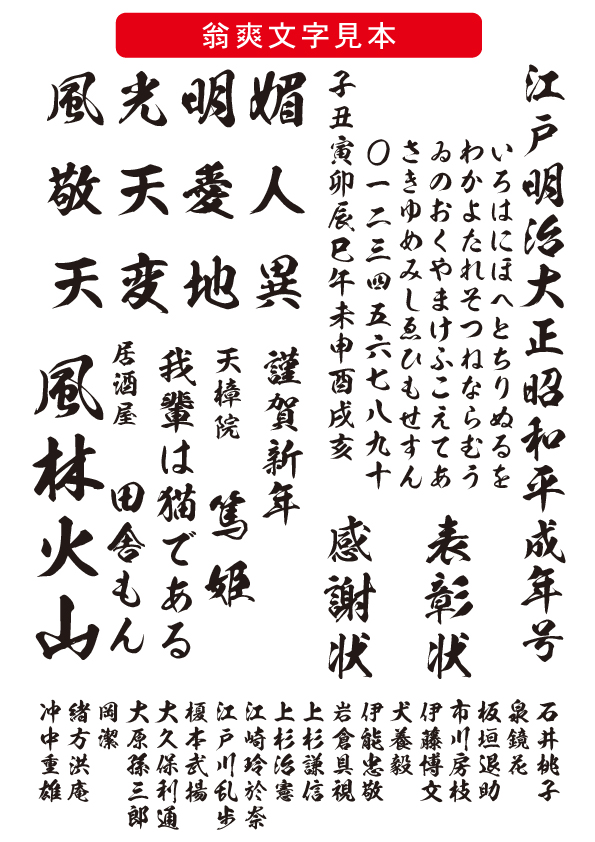 翁爽文字見本
江戸明治大正昭和平成年号
いろはにほへとちりぬるを
わかよたれそつねならむう
ゐのおくやまけふこえてあ
さきゆめみしゑひもせすん
〇一二三四五六七八九十
子丑寅卯辰巳午未申酉戌亥
表彰状
感謝状
媚人異
明愛地
光天変
風敬天
謹賀新年
天樟院
篤姫
我輩は猫である
居酒屋
田舎もん
風林火山
石井桃子
泉鏡花
板垣退助
市川房枝
伊藤博文
犬養毅
伊能忠敬
岩倉具視
上杉謙信
上杉治憲
江崎玲於奈
江戸川乱歩
榎本武揚
大久保利通
大原孫三郎
岡潔
緒方洪庵
沖中重雄